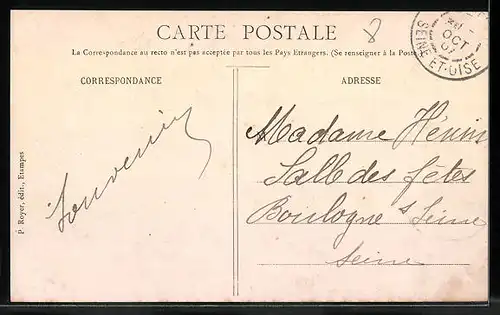 CARTE POSTALE
8
La Correspondance au recto n'est pas acceptée par tous les Pays Etrangers. (Se renseigner à la Poste
CORRESPONDANCE
ADRESSE
OCT
07
SEINE-ET-OISE
Souvenir
Madame Hénin
Salle des fêtes
Boulogne s Seine
Seine
P. Royer, édit., Etampes